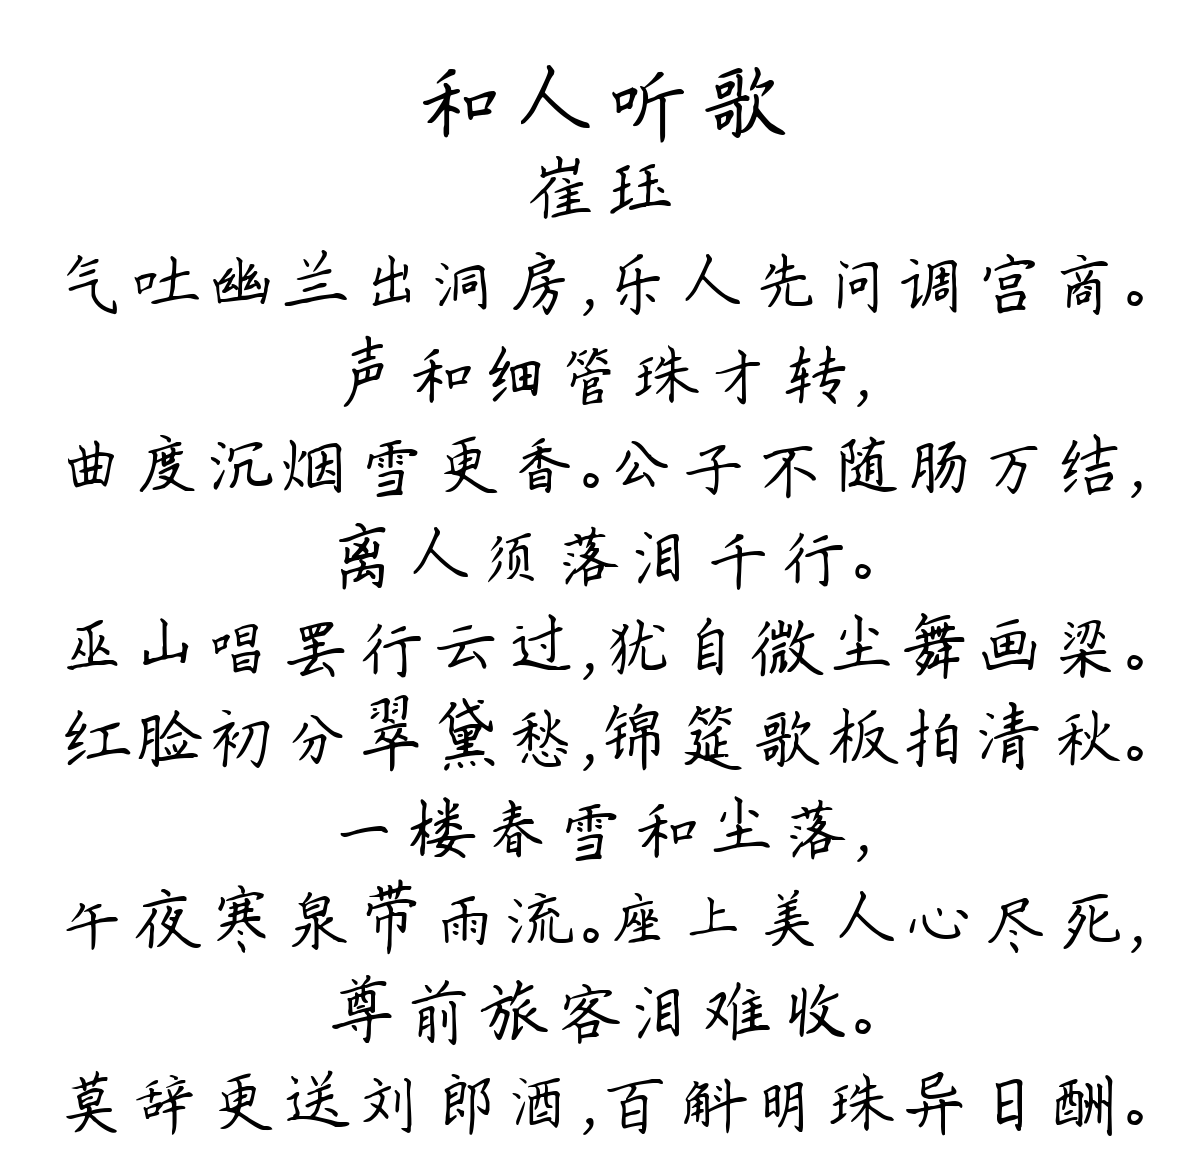 和人听歌
崔珏
气吐幽兰出洞房,乐人先问调宫商。
声和细管珠才转,
曲度沉烟雪更香。公子不随肠万结,
离人须落泪千行。
巫山唱罢行云过,犹自微尘舞画梁。
红脸初分翠黛愁,锦筵歌板拍清秋。
一楼春雪和尘落,
午夜寒泉带雨流。座上美人心尽死,
尊前旅客泪难收。
莫辞更送刘郎酒,百斛明珠异日酬。